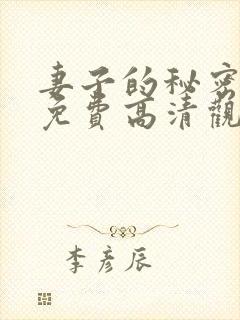 妻子的秘密
免费高清觀
李彦辰